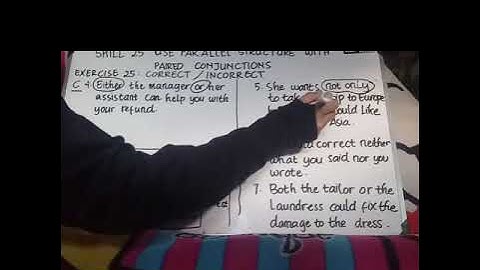 SKILL 25 USE PARALLEL STRUCTURE WITH
PAIRED CONJUNCTIONS
EXERCISE 25: CORRECT / INCORRECT
C 4. Either the manager or her
assistant can help you with
your refund.
5. She wants not only
to take to Europe
ould like
Asia.
correct neither
what you said nor you
wrote.
7. Both the tailor or the
Laundress could fix the
damage to the dress.